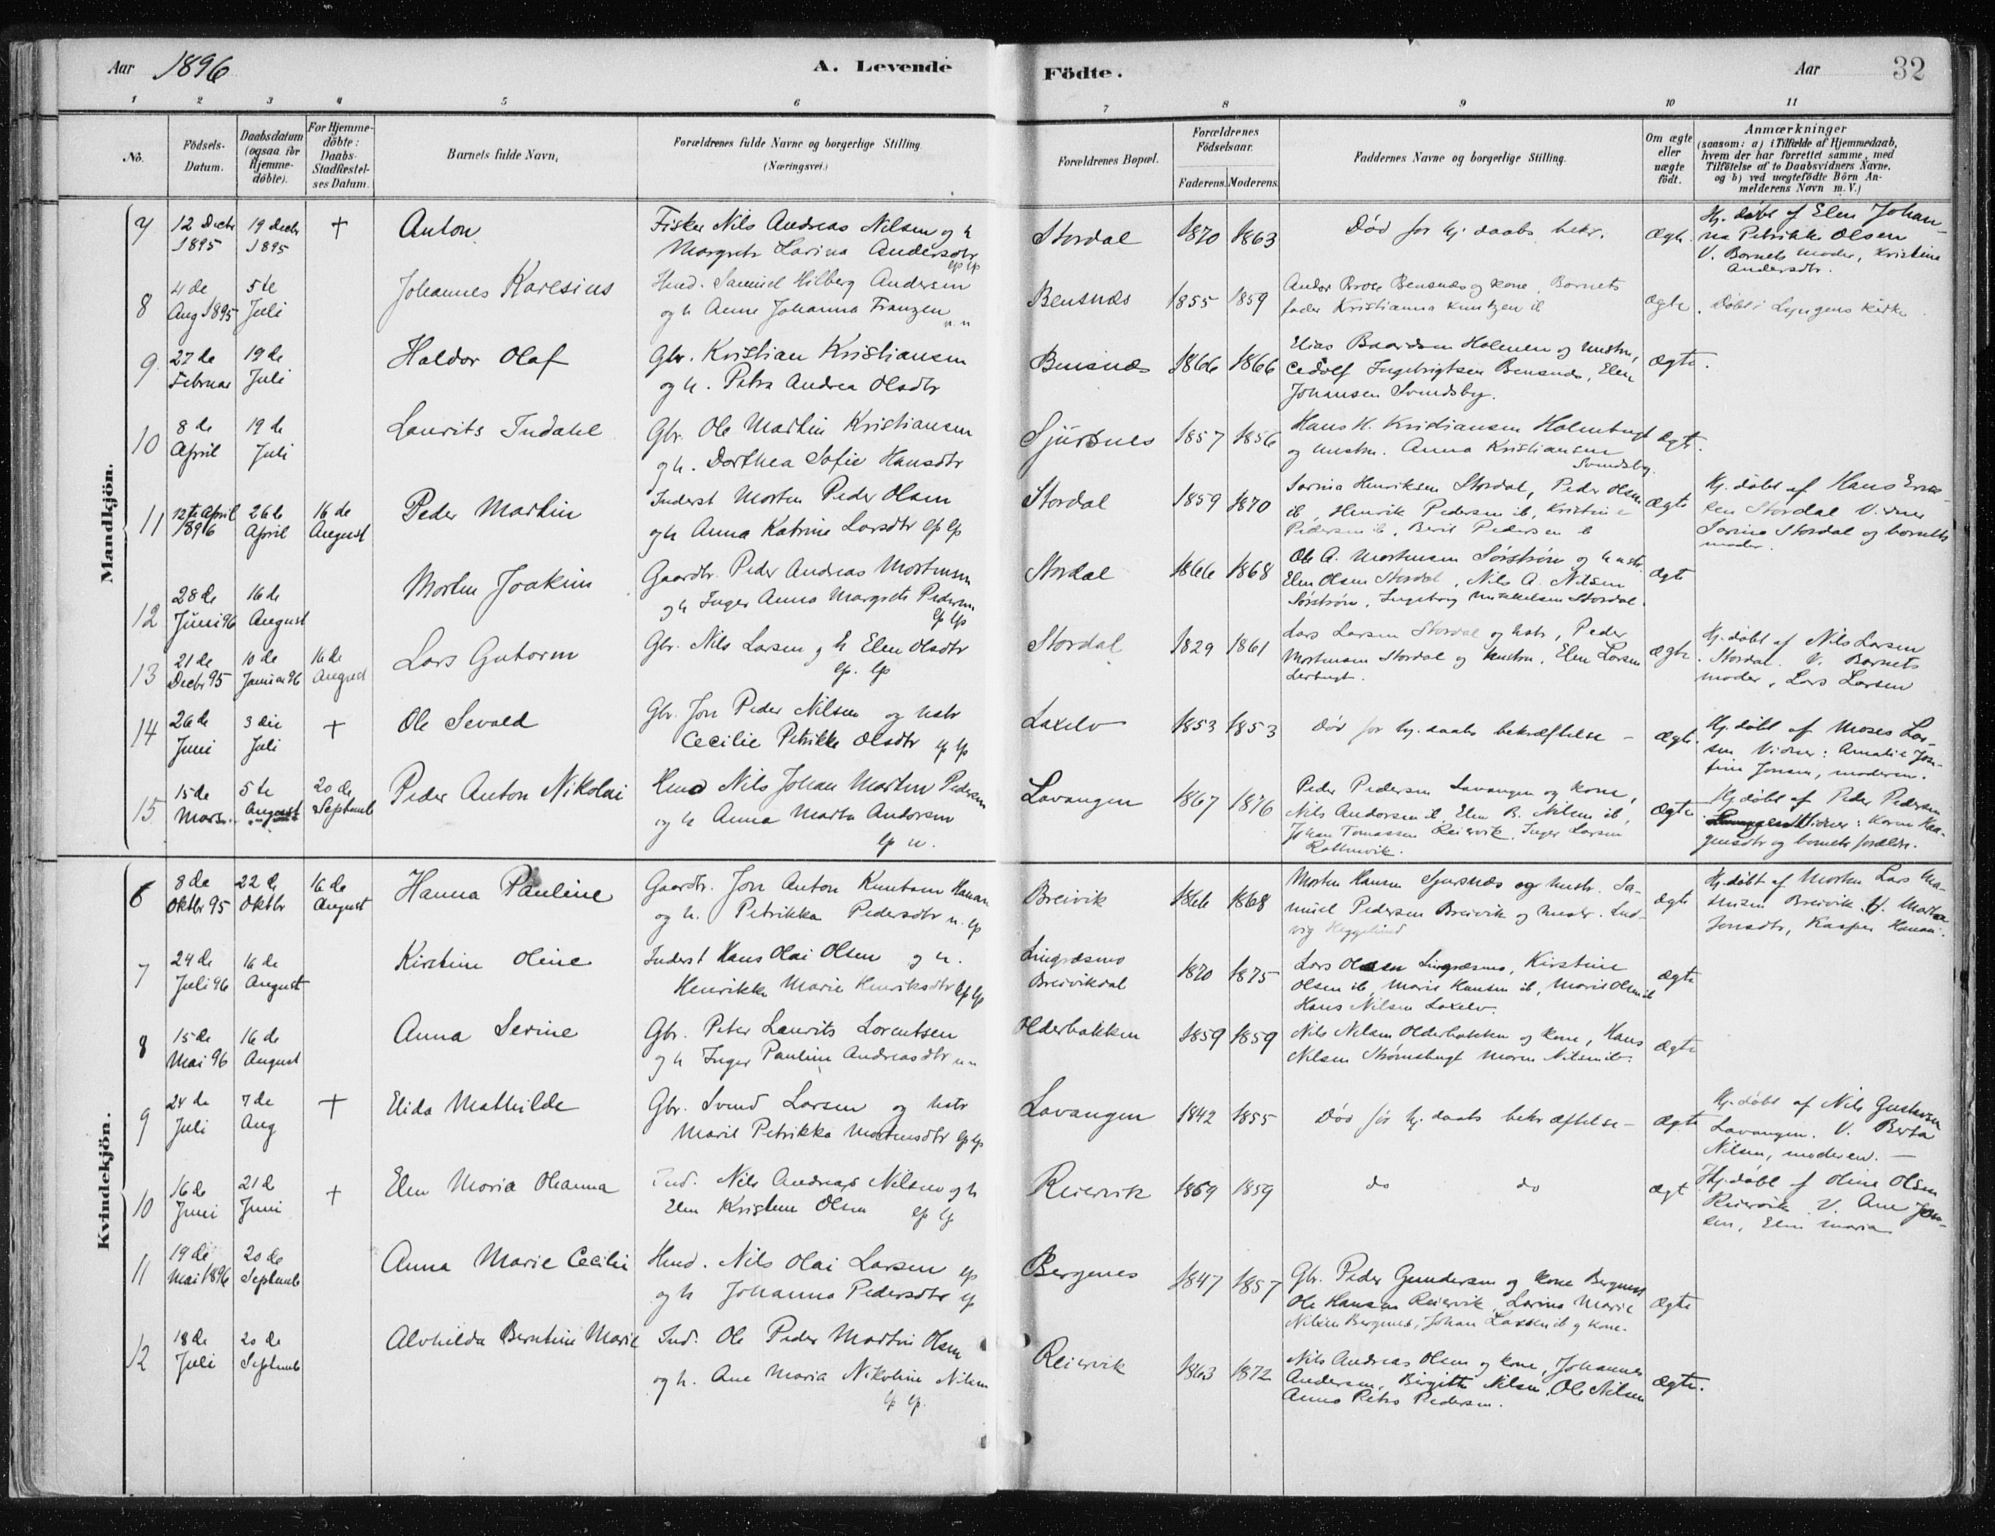 Aar 1896. A. Levende Födte. Aar 32
1 2 3 4 5 6 7 8 9 10 11
No. Födsels-Datum. Daabsdatum (ogsaa for Hjemme-döbte). For Hjemme-döbte: Daabs-Stadfæstel-ses Datum. Barnets fulde Navn. Forældrenes fulde Navne og borgerlige Stilling. (Næringsvei.) Forældrenes Bopæl. Forældrenes Födselsaar. Faderens. Moderens. Faddernes Navne og borgerlige Stilling. Om ægte eller uægte födt. Anmærkninger (saasom: a) i Tilfælde af Hjemmedaab, hvem der har forrettet samme, med Tilföielse af to Daabsvidners Navne, og b) ved uægtefödte Börn An-melderens Navn m. V.)
Mandkjön.
7 12 Decbr 19 Decbr + Anton Fisker Nils Andreas Nilsen og h Stordal 1870 1863 Død før hj. daabs bekr. Ægte. Hj. døbt af Elen Johan-
1895 1895 Margrete Larina Andersdtr lp lp na Petrikke Olsen
V. Barnets moder, Kristine
Andersdtr.
8 4de 5te Johannes Karesius Hmd. Samuel Hilberg Andersen Bensnæs 1855 1859 Andor Bensnæs og kone, Barnets ægte. Døbt i Lyngens kirke
Aug 1895 Juli og h Anne Johanna Franzen n n fader Kristianna Knutzen ib
9 27de 19de Haldor Olaf Gbr. Kristian Kristiansen Bensnæs 1866 1866 Elias Baardsen Holmen og hustru, ægte.
Februar Juli og h. Petra Andrea Olsdtr Ingebrigtsen Bensnæs, Elen
Johansen Svendsby.
10 8de 19de Laurits Indahl Gbr. Ole Martin Kristiansen Sjursnes 1857 1856 Hans H. Kristiansen Holmbugt ægte.
April Juli og h. Dorthea Sofie Hansdtr og hustru. Anna Kristiansen
Svendsby.
11 12te April 26de 16de Peder Martin Inderst Morten Peder Olsen Stordal 1859 1870 Sarina Henriksen Stordal, Peder Olsen ægte Hj. døbt af Hans
1896 April August og h Anna Katrine Larsdtr lp lp ib, Henrik Pedersen ib, Kristine Stordal Vidner
Pedersen ib, Berit Pedersen ib Sarina Stordal og barnets
moder.
12 28de 16de Morten Joakim Gaardbr. Peder Andreas Mortensen Stordal 1866 1868 Ole A. Mortensen Sørstrøm og hustr. ægte
Juni 96 August og h Inger Anna Margrete Pedersen lp lp Elen Olsen Stordal, Nils A. Nilsen
Sørstrøm, Ingeborg Mikkelsen Stordal.
13 21de 10de 16de Lars Gutorm Gbr. Nils Larsen g h Elen Olsdtr Stordal 1829 1861 Lars Larsen Stordal og hstr, Peder ægte Hj. døbt af Nils Larsen
Decbr 95 Januar 96 August lp. lp Mortensen Stordal og hustru, Elen Larsen Stordal. V. Barnets
moder, Lars Larsen
14 26de 3die + Ole Sevald Gbr. Jon Peder Nilsen og hstr Laxelv 1853 1853 Død før hj. daabs bekræftelse – ægte. Hj. døbt af Moses Lar-
Juni Juli Cecilie Petrikke Olsdtr lp lp sen Vidner: Amalie Jose-
fine Jonsen, moderen.
15 15de 5te 20de Peder Anton Nikolai Hmd Nils Johan Martin Pedersen Lavangen 1867 1876 Peder Pedersen Lavangen og kone, ægte Hj. døbt af Peder Pedersen
Mars. August Septemb og h Anna Marta Andorsen Nils Andorsen ib, Elen B. Nilsen ib, Vidner: Karen Haa-
lp n. Johan Tomassen Reiervik, Inger Larsen gensdtr og barnets forældre.
Kvindekjön.
6 8de 22de 16de Hanna Pauline Gaardbr. Jon Anton Knutsen Hanson Breivik 1866 1868 Morten Hansen Sjursnæs og hustr. Sa- ægte Hj. døbt af Morten Lars Ma-
Oktbr 95 Oktbr August og h. Petrikka Pedersdtr n. lp muel Pedersen Breivik og hustr. Lud- thisen Breivik. V. Martha
vig Heggelund Jonsdtr, Kasper Hansen.
7 24de 16de Kirstine Oline Inderst Hans Olai Olsen og h. Lingræsmo 1870 1875 Lars Olsen Lingræsmo, Kirstine ægte
Juli 96 August Henrikke Marie Henriksdtr lp lp Breivikdal Olsen ib, Marie Hansen ib, Marie Olsen ib
Hans Nilsen Laxelv.
8 15de 16de Anna Serine Gbr. Peter Laurits Lorentsen Olderbakken 1859 1859 Nils Nilsen Olderbakken og kone, Hans ægte
Mai 96 August og h Inger Pauline Andreasdtr n n Nilsen Strømsbugt Maren Nilsen ib.
9 24de 7de + Elida Mathilde Gbr. Svend Larsen og hstr Lavangen 1842 1855 Død før hj. daabs bekræftelse – ægte Hj. døbt af Nils Gustavsen
Juli Aug Maril Petrikka Mortensdtr lp lp Lavangen. V. Berta
Nilsen, moderen. –
10 16de 21de + Elen Maria Olianna Ind. Nils Andreas Nilsen og h Reiervik 1869 1859 do do ægt Hj. døbt af Oline Olsen
Juni Juni Elen Kristine Olsen lp lp Reiervik V. Ane Jen-
sen, Elen Maria
11 19de 20de Anna Marie Cecilie Hmd. Nils Olai Larsen lp Bergenes 1847 1857 Gbr. Peder Gundersen og kone Bergenes ægte
Mai 1896 Septemb og h Johanna Pedersdtr lp Ole Hansen Reiervik, Larina Marie
Nilsen Bergenes, Johan Larsen ib og kone.
12 18de 20de Alvhilda Berntine Marie Ind. Ole Peder Martin Olsen Reiervik 1863 1872 Nils Andreas Olsen og kone, Johannes ægte.
Juli Septemb og h. Ane Maria Nikoline Nilsen Andersen, Birgitte Nilsen, Ole Nilsen
lp lp. Anna Petra Pedersen.